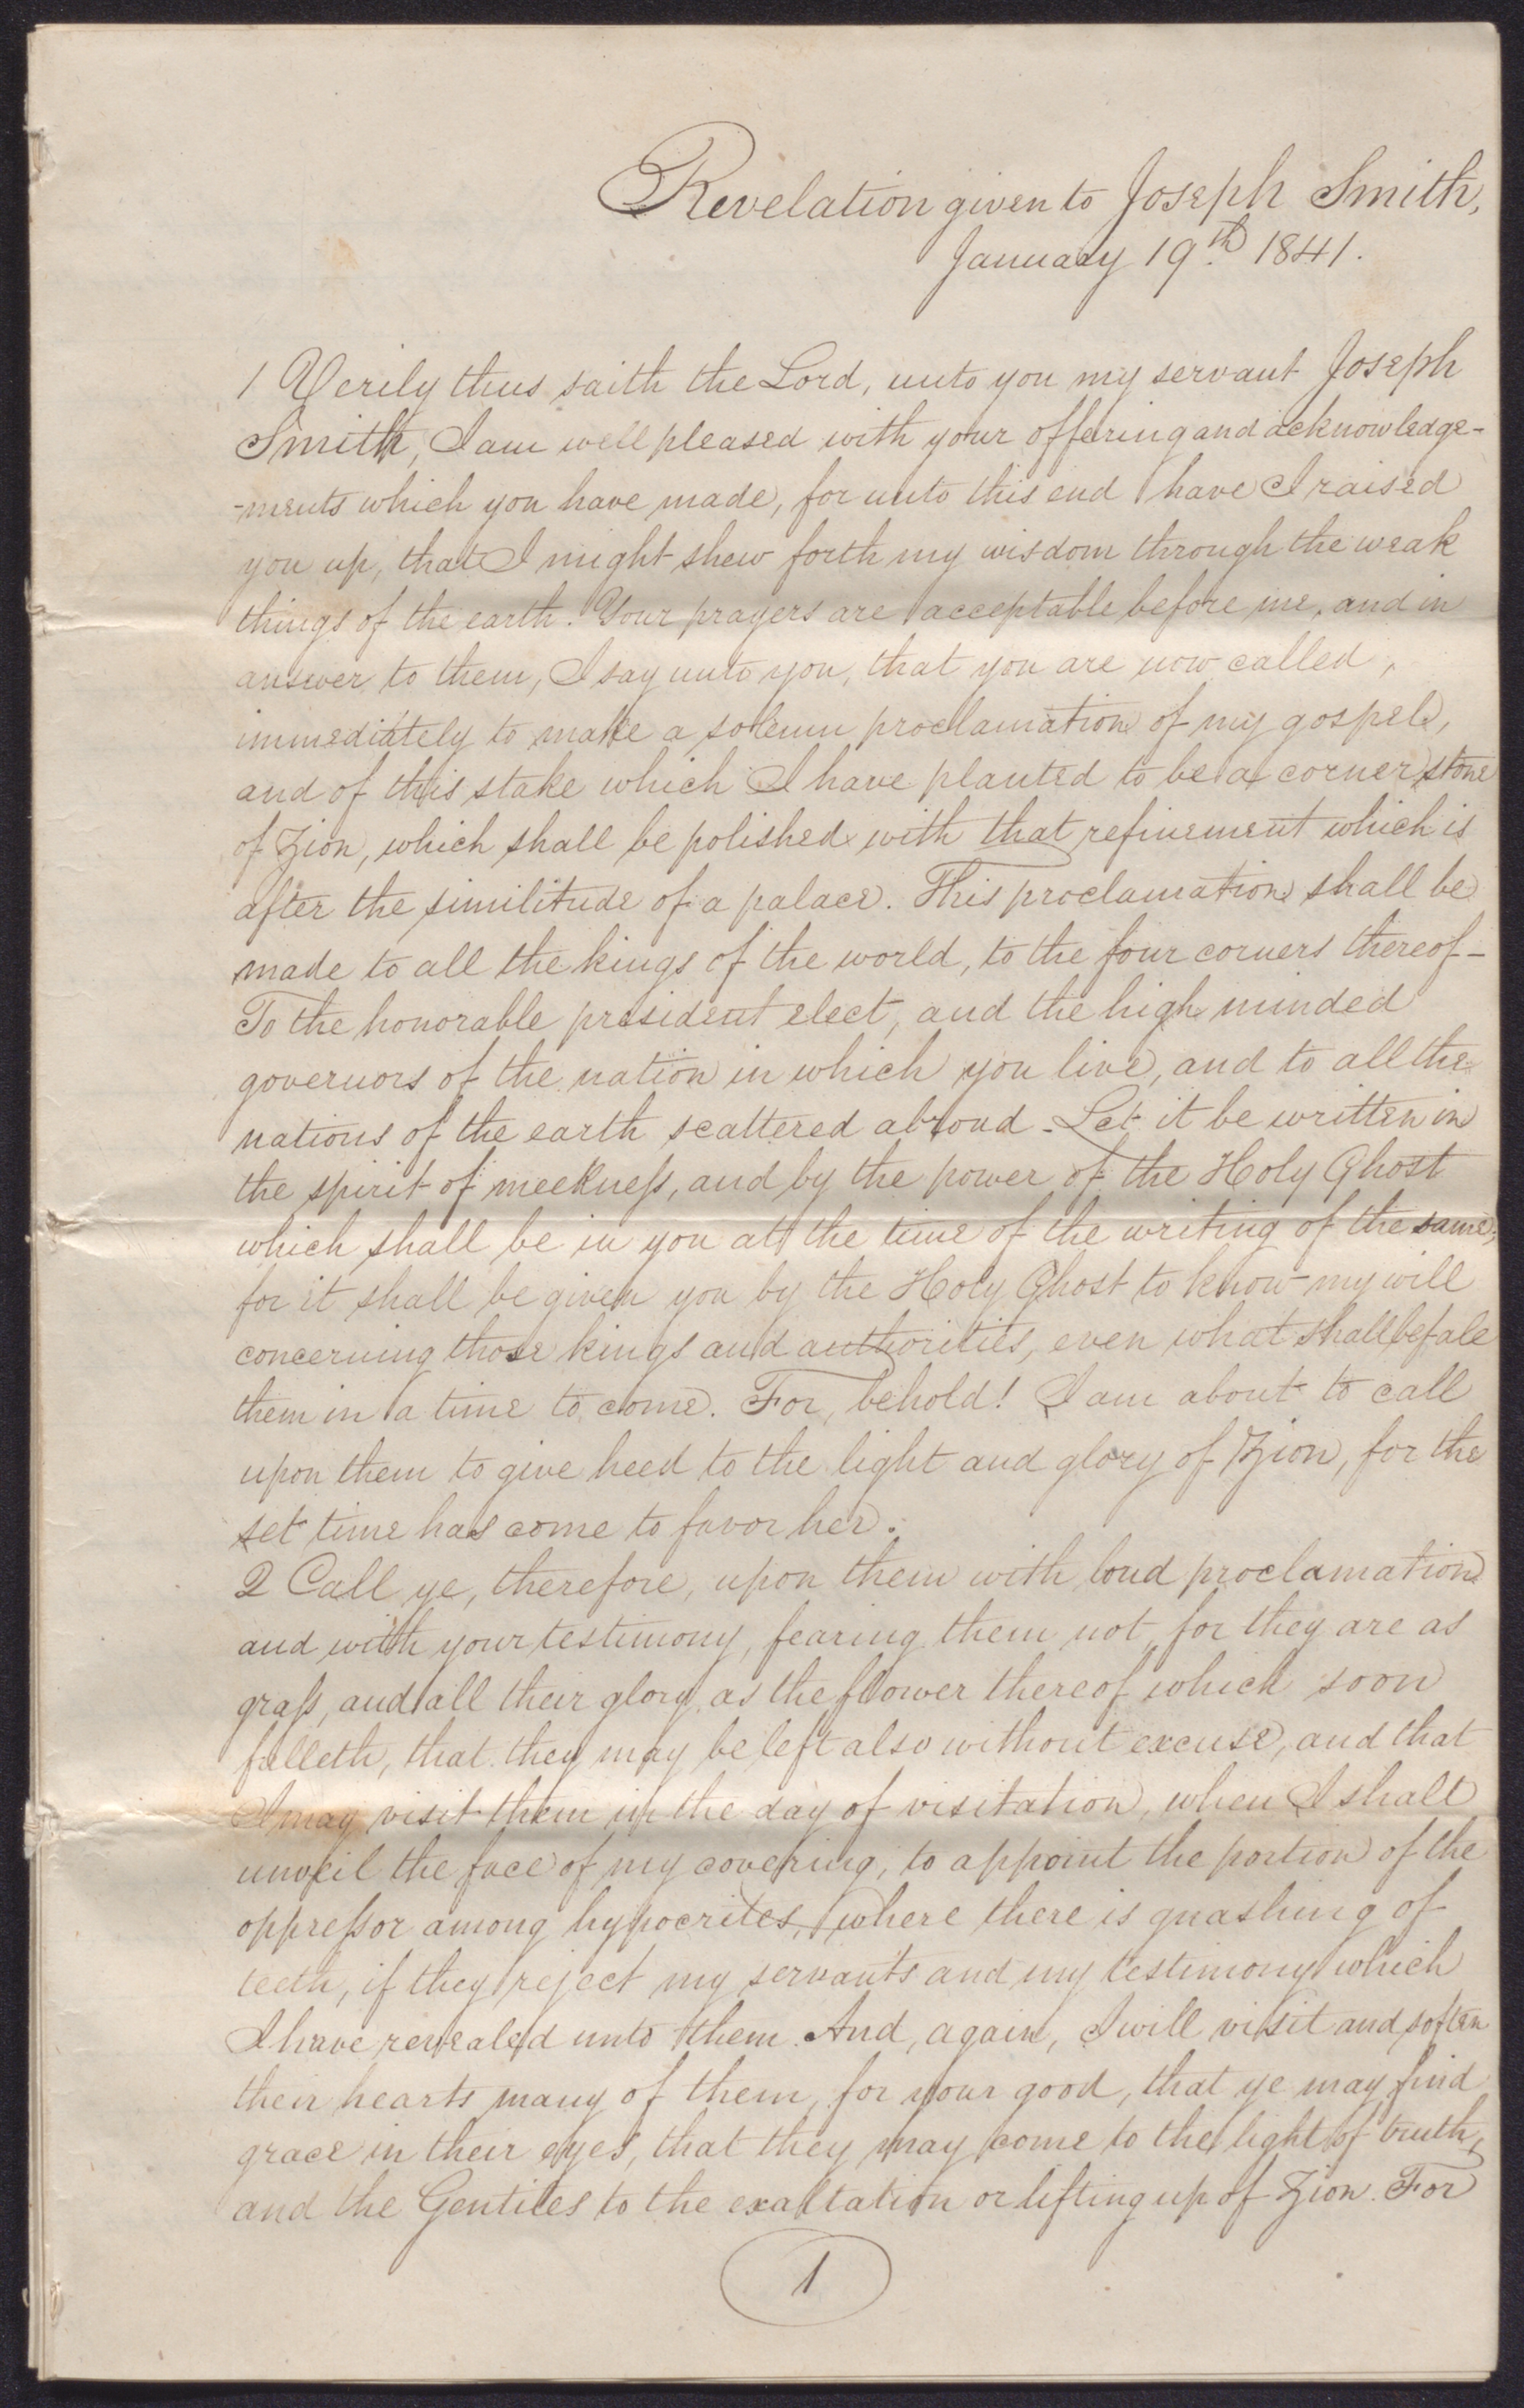 Revelation given to Joseph Smith,
January 19th. 1841.
1 Verily thus saith the Lord, unto you my servant Joseph
Smith, I am well pleased with your offering and acknowledge-
-ments which you have made, for unto this end have I raised
you up, that I might shew forth my wisdom through the weak
things of the earth. Your prayers are acceptable before me, and in
answer to them, I say unto you, that you are now called,
immediately to make a solemn proclamation of my gospel,
and of this stake which I have planted to be a corner stone
of Zion, which shall be polished with that refinement which is
after the similitude of a palace. This proclamation shall be
made to all the kings of the world, to the four corners thereof–
To the honorable president elect, and the high minded
governors of the nation in which you live, and to all the
nations of the earth scattered abroad. Let it be written in
the spirit of meekness, and by the power of the Holy Ghost
which shall be in you at the time of the writing of the same;
for it shall be given you by the Holy Ghost to know my will
concerning those kings and authorities, even what shall befale
them in a time to come. For, behold! I am about to call
upon them to give heed to the light and glory of Zion, for the
set time has come to favor her.
2 Call ye, therefore, upon them with loud proclamation
and with your testimony, fearing them not, for they are as
grass, and all their glory as the flower thereof which soon
falleth, that they may be left also without excuse, and that
I may visit them in the day of visitation, when I shall
unveil the face of my covering, to appoint the portion of the
oppressor among hypocrites, where there is gnashing of
teeth, if they reject my servants and my testimony which
I have revealed unto them. And, again, I will visit and soften
their hearts many of them, for your good, that ye may find
grace in their eyes, that they may come to the light of truth,
and the Gentiles to the exaltation or lifting up of Zion. For
1